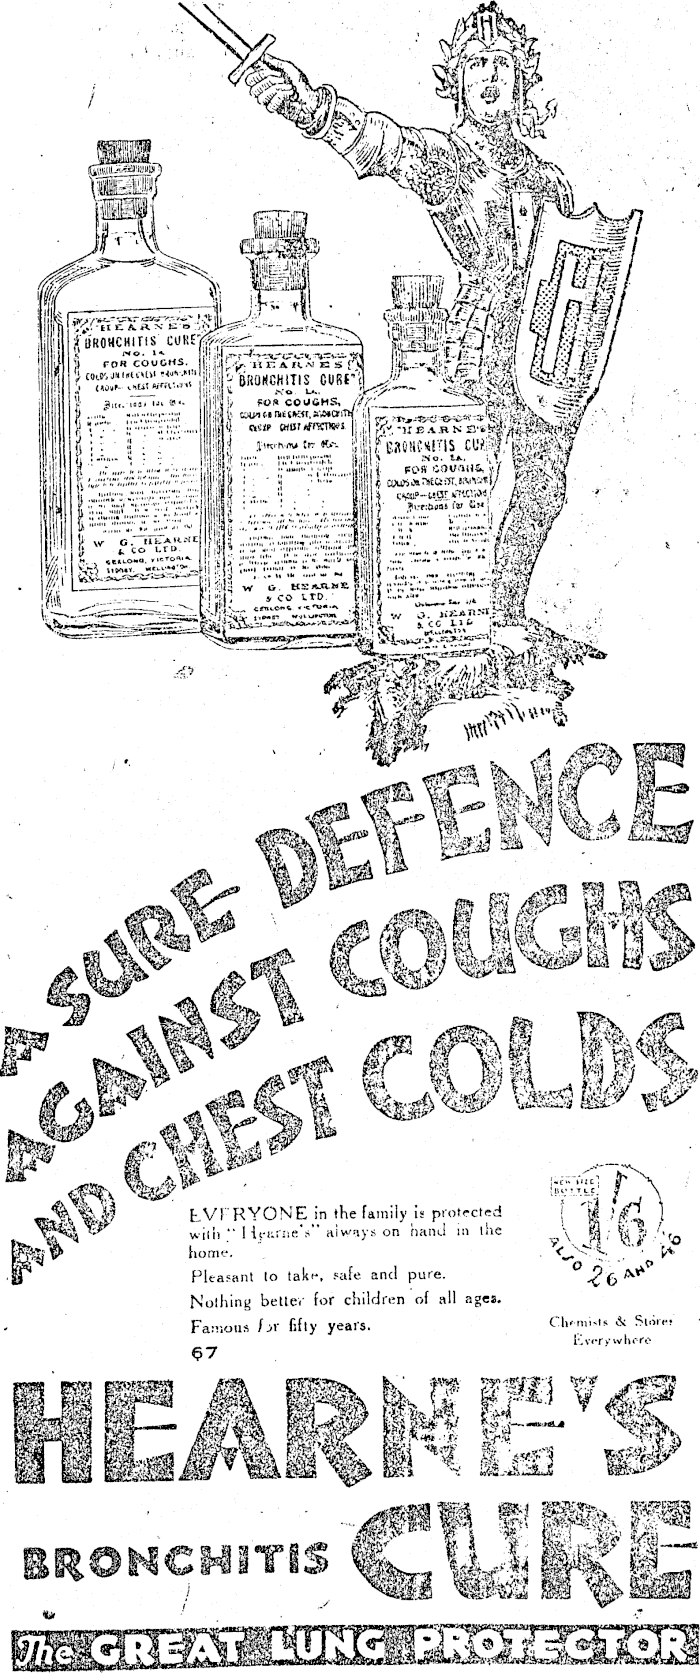 H
HEARNE'S
BRONCHITIS CURE
No. 1A
FOR COUGHS,
COLDS ON THE CHEST BRONCHITIS
CROUP CHEST AFFECTIONS
Directions for Use
W. G. HEARNE
& CO LTD.
GEELONG, VICTORIA
SYDNEY. WELLINGTON
HEARNE'S
BRONCHITIS CURE
No. 1A.
FOR COUGHS,
COLDS ON THE CHEST, BRONCHITIS
CROUP CHEST AFFECTIONS
Directions for Use
W. G. HEARNE
& CO LTD.
GEELONG VICTORIA
SYDNEY WELLINGTON
HEARNE'S
BRONCHITIS CUR
No. 1A.
FOR COUGHS,
COLDS ON THE CHEST,
CROUP—CHEST AFFECTION
Directions for Use
W. G. HEARN
& CO LTD
WELLINGTON
H
A SURE DEFENCE
AGAINST COUGHS
AND CHEST COLDS
EVERYONE in the family is protected
with "Hearne's" always on hand in the
home.
Pleasant to take, safe and pure.
Nothing better for children of all ages.
Famous for fifty years.
67
NEW SIZE
BOTTLE
1/6
ALSO 2/6 AND 4/6
Chemists & Stores
Everywhere
HEARNE'S
BRONCHITIS CURE
The GREAT LUNG PROTECTOR